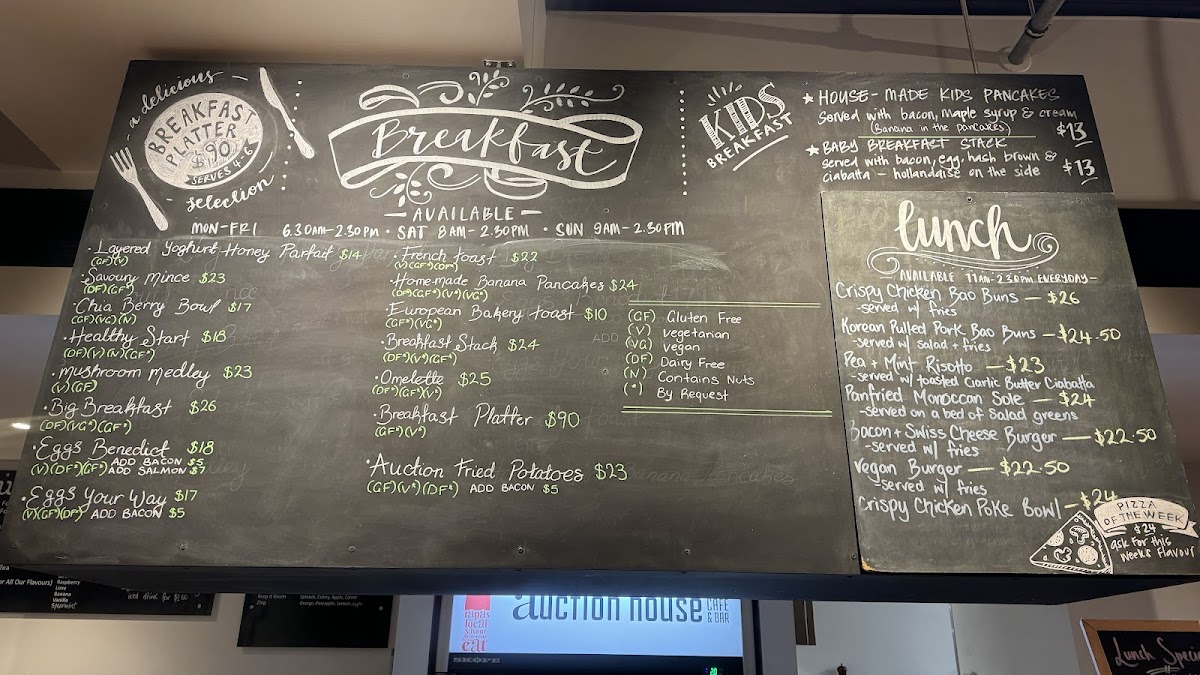 a delicious
BREAKFAST
PLATTER
$90
SERVES 4-6
selection
Breakfast
AVAILABLE
MON-FRI 6.30am-2.30pm · SAT 8AM-2.30PM · SUN 9AM-2.30PM
· Layered Yoghurt Honey Parfait $14
(GF)(V)
· Savoury Mince $23
(DF)(GF*)
· Chia Berry Bowl $17
(GF)(VG)(N)
· Healthy Start $18
(DF)(V)(N)(GF*)
· Mushroom medley $23
(V)(GF)
· Big Breakfast $26
(DF)(VG*)(GF*)
· Eggs Benedict $18
(V)(DF*)(GF*) ADD BACON $5
ADD SALMON $7
· Eggs Your Way $17
(V)(GF)(DF) ADD BACON $5
· French toast $22
(V)(GF*)(DF*)
· Home-made Banana Pancakes $24
(DF*)(GF*)(V*)(VG*)
· European Bakery toast $10
(GF*)(VG*)
· Breakfast Stack $24
(DF*)(V*)(GF*)
· Omelette $25
(DF*)(GF*)(V*)
· Breakfast Platter $90
(GF*)(V*)
· Auction Fried Potatoes $23
(GF)(V*)(DF*) ADD BACON $5
(GF) Gluten Free
(V) vegetarian
(VG) vegan
(DF) Dairy Free
(N) Contains Nuts
(*) By Request
KIDS
BREAKFAST
★ HOUSE-MADE KIDS PANCAKES
Served with bacon, maple syrup & cream
(Banana in the pancakes) $13
★ BABY BREAKFAST STACK
served with bacon, egg, hash brown &
ciabatta - hollandaise on the side $13
lunch
AVAILABLE 11AM-2.30PM EVERYDAY-
Crispy Chicken Bao Buns - $26
-served w/ fries
Korean Pulled Pork Bao Buns - $24.50
-served w/ salad + fries
Pea + Mint Risotto - $23
-served w/ toasted Garlic Butter Ciabatta
Panfried Moroccan Sole - $24
-served on a bed of salad greens
Bacon + Swiss Cheese Burger - $22.50
-served w/ fries
Vegan Burger - $22.50
served w/ fries
Crispy Chicken Poke Bowl - $24
PIZZA
OF THE WEEK
$24
ask for this
weeks flavour
Raspberry
Lime
Banana
Vanilla
Spearmint
auction house
CAFE
& BAR
local
eat
SKOPE
Lunch Specia